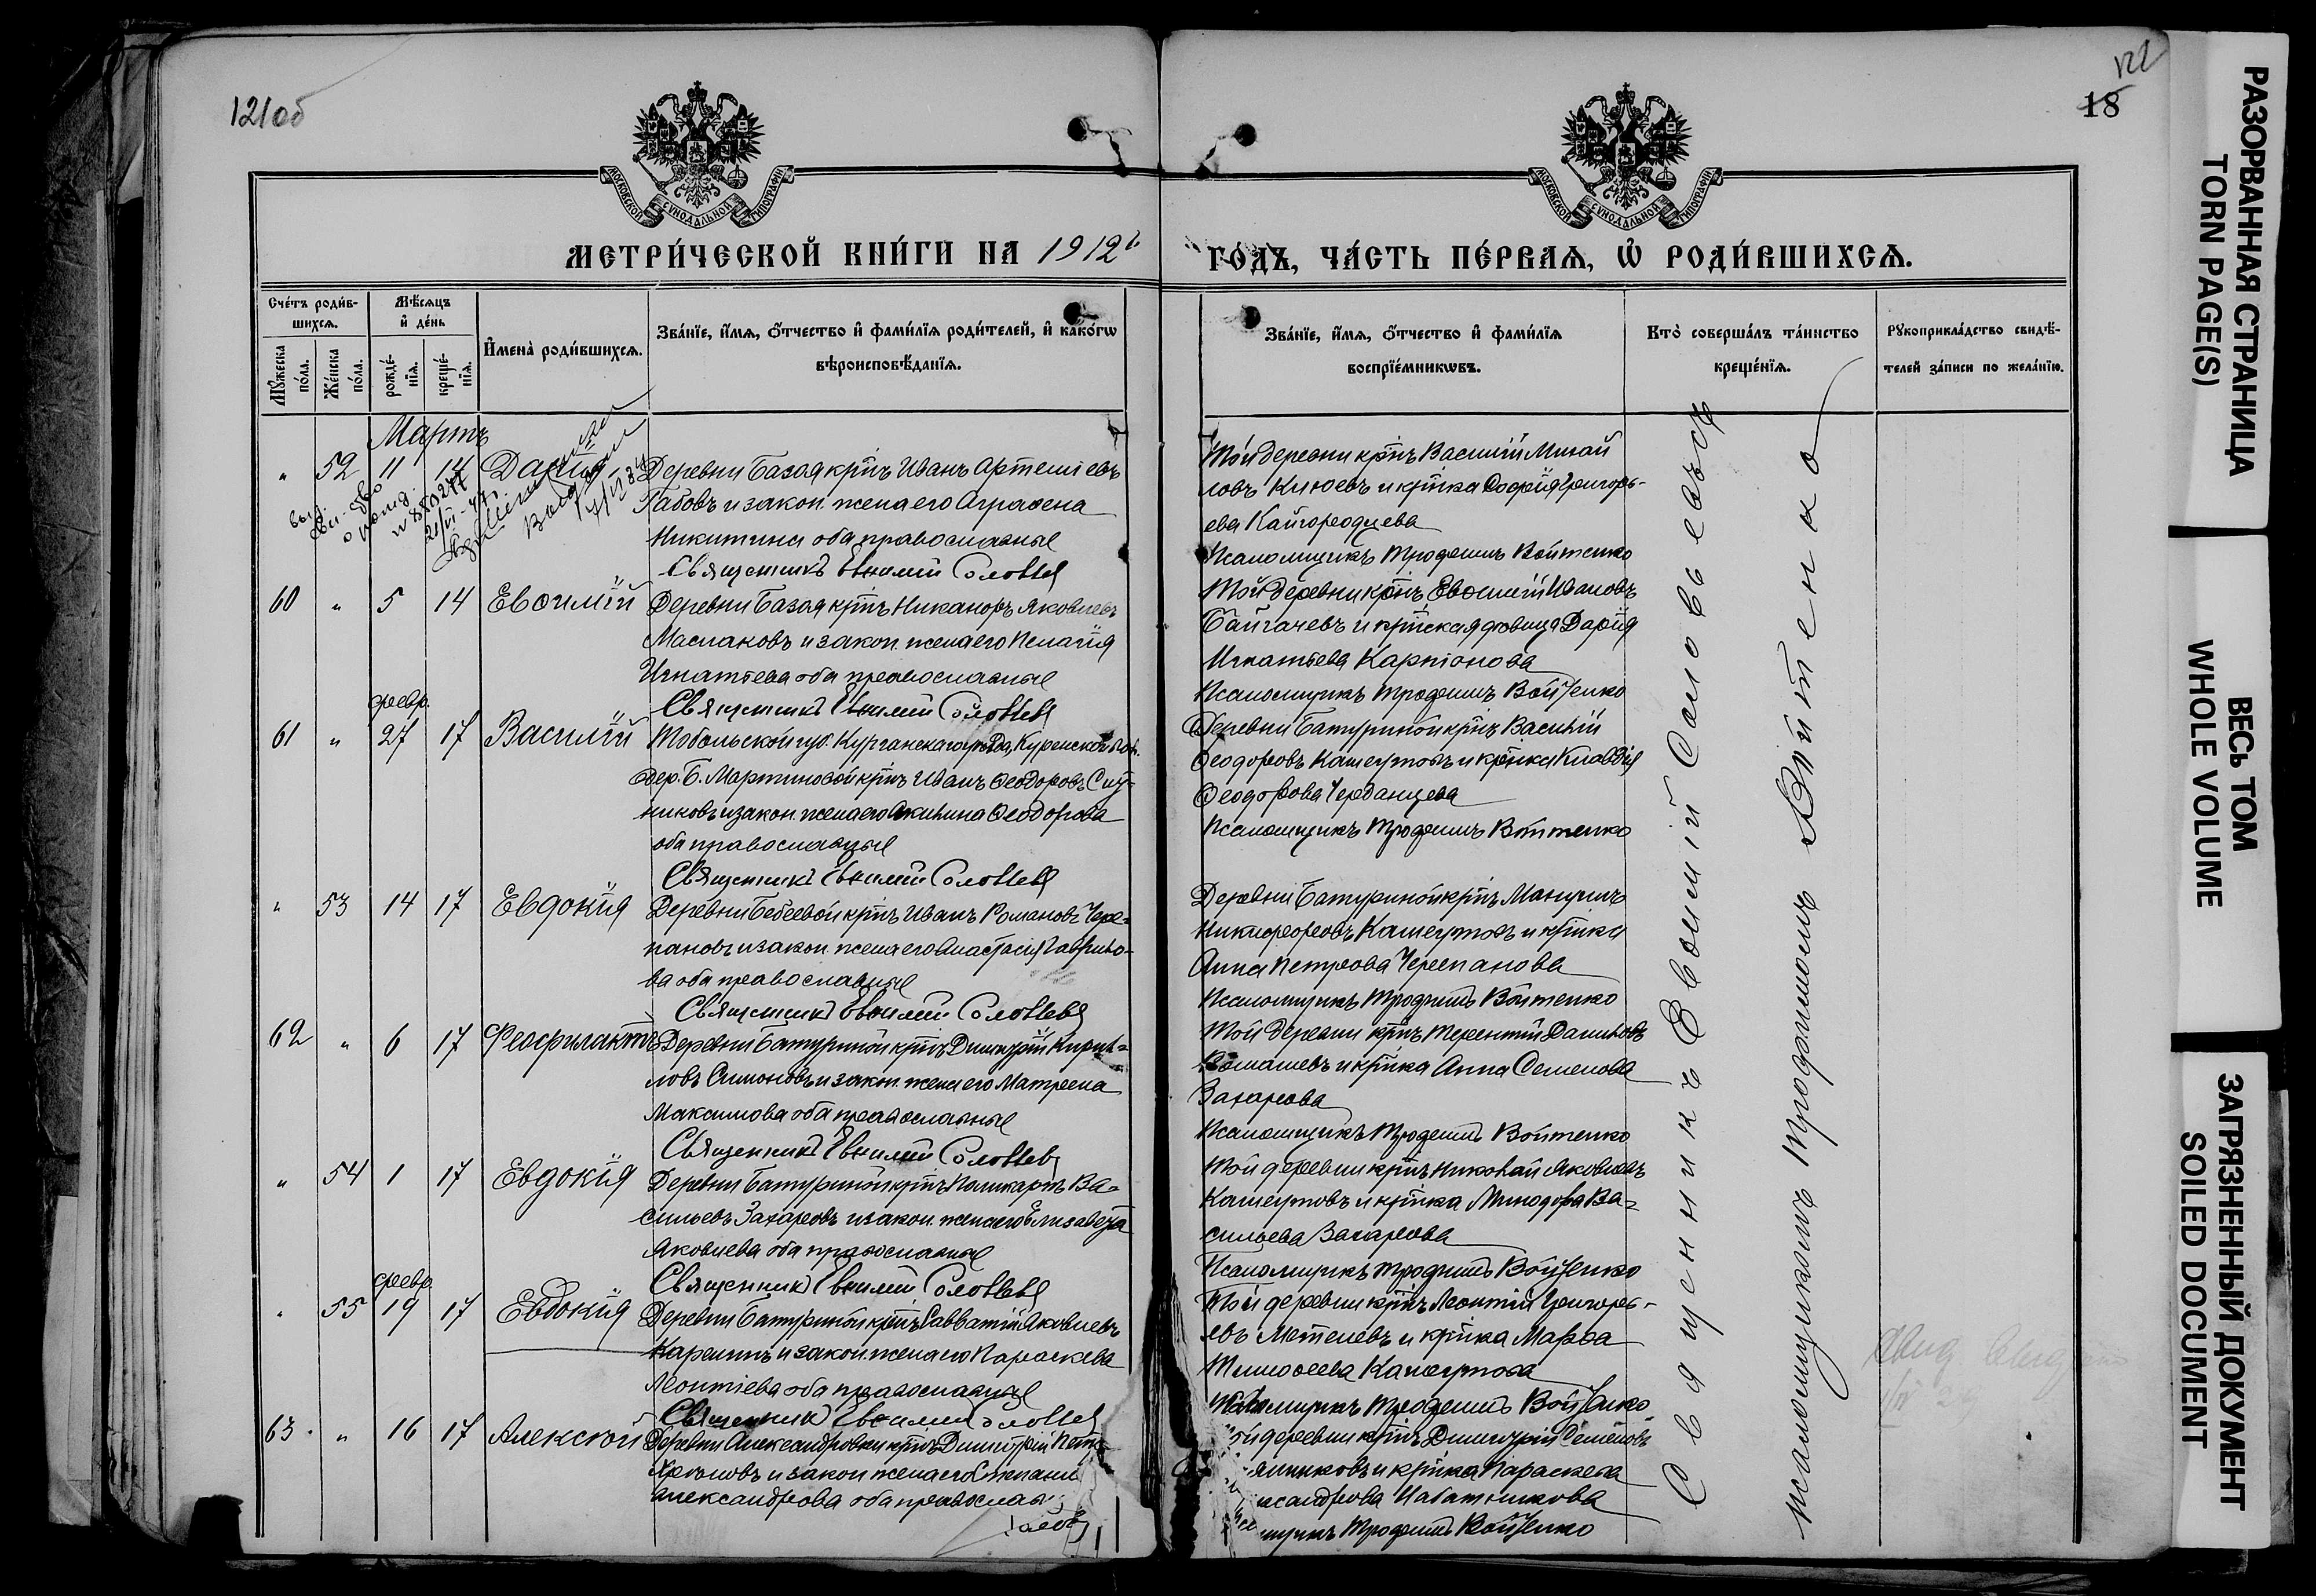 121об
122
18
МОСКОВСКОЙ СѴНОДАЛЬНОЙ ТИПОГРАФІИ
МОСКОВСКОЙ СѴНОДАЛЬНОЙ ТИПОГРАФІИ
МЕТРИ́ЧЕСКОЙ КНИ́ГИ НА 1912
ГО́ДЪ, ЧА́СТЬ ПЕ́РВАѦ, Ѡ҆ РОДИ́ВШИХСѦ.
Сче́тъ роди́в-
шихсѧ.
Мꙋ́жеска по́ла.
Же́нска по́ла.
Мѣ́сѧцъ
и҆ де́нь
рожде́-
нїѧ.
креще́-
нїѧ.
И҆мена̀ роди́вшихсѧ.
Зва́нїе, и҆́мѧ, ѻ҆́тчество и҆ фами́лїѧ роди́телей, и҆ како́гѡ
вѣроисповѣ́данїѧ.
Зва́нїе, и҆́мѧ, ѻ҆́тчество и҆ фами́лїѧ
воспрїе́мникѡвъ.
Кто̀ соверша́лъ та́инство
креще́нїѧ.
Рꙋкоприкла́дство свидѣ́-
телей за́писи по жела́нїю.
Мартъ
" 52 11 14 Дарія
Деревни Базоя крнъ Иванъ Артемьевъ
Габовъ и закон. жена его Аграфена
Никитина оба православные
Священникъ Евѳимій Соловьев
Той деревни крнъ Василій Михай
ловъ Клюевъ и кр-нка Софія Григорь-
ева Кайгородцева
Псаломщикъ Трофимъ Войтенко
60 " 5 14 Евѳимій
Деревни Базоя крнъ Никаноръ Яковлевъ
Маслаковъ и закон. жена его Пелагія
Игнатьева оба православные
Священникъ Евѳимій Соловьев
Той деревни крнъ Евѳимій Ивановъ
Байгачевъ и крнская девица Дарія
Игнатьева Карпіонова
Псаломщикъ Трофимъ Войтенко
февр.
61 " 27 17 Василій
Тобольской губ. Курганскаго уезда,
дер. Б. Мартиновой крнъ Иванъ Ѳеодоровъ Сит-
никовъ и закон. жена его Акилина Ѳеодорова
оба православные
Священникъ Евѳимій Соловьев
Деревни Батуриной крнъ Василій
Ѳеодоровъ Кашеутовъ и кр-нка Клавдія
Ѳеодорова Черданцева
Псаломщикъ Трофимъ Войтенко
" 53 14 17 Евдокія
Деревни Бебеевой крнъ Иванъ Романовъ Чере-
пановъ и закон. жена его Анастасія Гаврило-
ва оба православные
Священникъ Евѳимій Соловьев
Деревни Батуриной крнъ Мануилъ
Никифоровъ Кашеутовъ и кр-нка
Анна Петрова Черепанова
Псаломщикъ Трофимъ Войтенко
62 " 6 17 Феофилактъ
Деревни Батуриной крнъ Димитрій Кирил-
ловъ Симоновъ и закон. жена его Матрена
Максимова оба православные
Священникъ Евѳимій Соловьев
Той деревни крнъ Терентій Даниловъ
Ромашевъ и кр-нка Анна Семенова
Захарова
Псаломщикъ Трофимъ Войтенко
" 54 1 17 Евдокія
Деревни Батуриной крнъ Поликарпъ Ва-
сильевъ Захаровъ и закон. жена его Елизавета
Яковлева оба православные
Священникъ Евѳимій Соловьев
Той деревни крнъ Николай Яковлевъ
Кашеутовъ и кр-нка Минодора Ва-
сильева Захарова
Псаломщикъ Трофимъ Войтенко
февр.
" 55 19 17 Евдокія
Деревни Батуриной крнъ Савватій Яковлевъ
Карелинъ и закон. жена его Параскева
Леонтіева оба православные
Священникъ Евѳимій Соловьев
Той деревни крнъ Леонтій Григорь-
евъ Метелевъ и кр-нка Марѳа
Тимоѳеева Кашеутова
Псаломщикъ Трофимъ Войтенко
63 " 16 17 Алексѣй
Деревни Александровки крнъ Димитрій
и закон. жена его Степани
Александрова оба православ
деревни крнъ Димитрій Семеновъ
и кр-нка Параскева
Набатникова
Трофимъ Войтенко
Священникъ Евѳимій Соловьевъ съ
псаломщикомъ Трофимомъ Войтенко
РАЗОРВАННАЯ СТРАНИЦА
TORN PAGE(S)
ВЕСЬ ТОМ
WHOLE VOLUME
ЗАГРЯЗНЕННЫЙ ДОКУМЕНТ
SOILED DOCUMENT